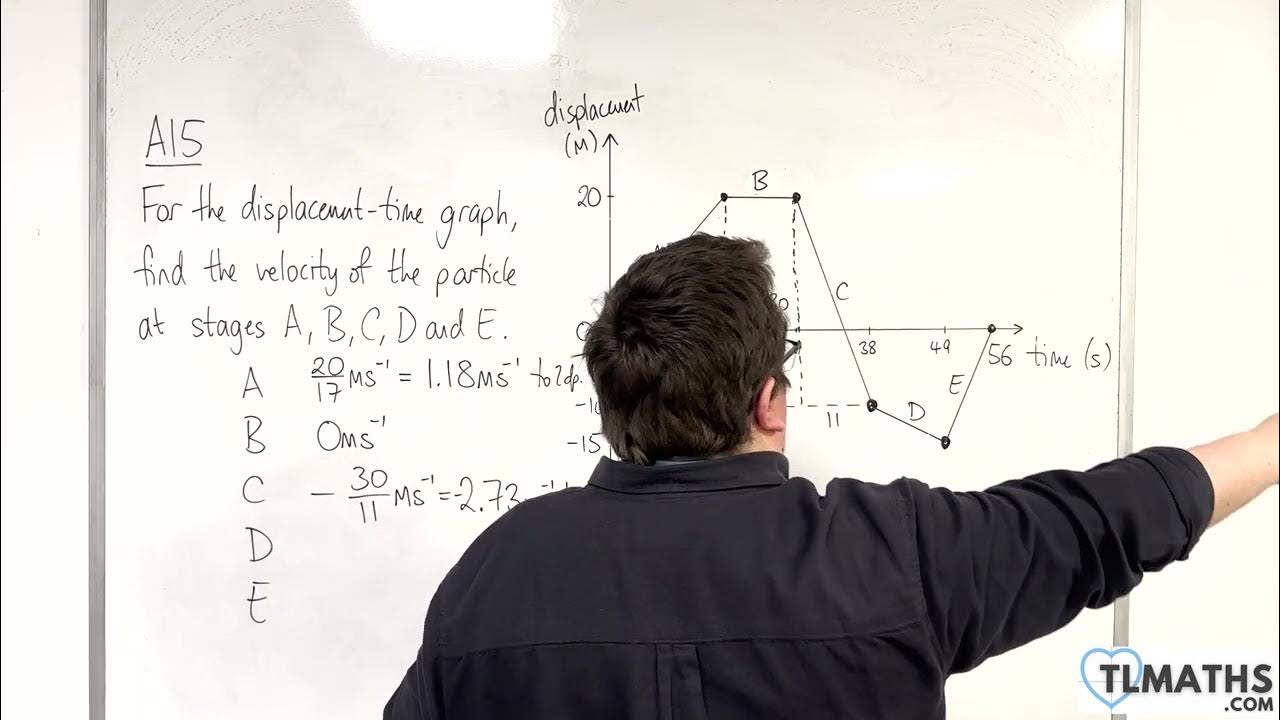 A15
For the displacement-time graph,
find the velocity of the particle
at stages A, B, C, D and E.
A 20/17 ms⁻¹ = 1.18ms⁻¹ to 2dp.
B 0ms⁻¹
C - 30/11 ms⁻¹ = -2.73
D
E
displacement
(m)
20
B
C
0
38
49
56
time (s)
E
D
11
-15
TLMATHS
.COM